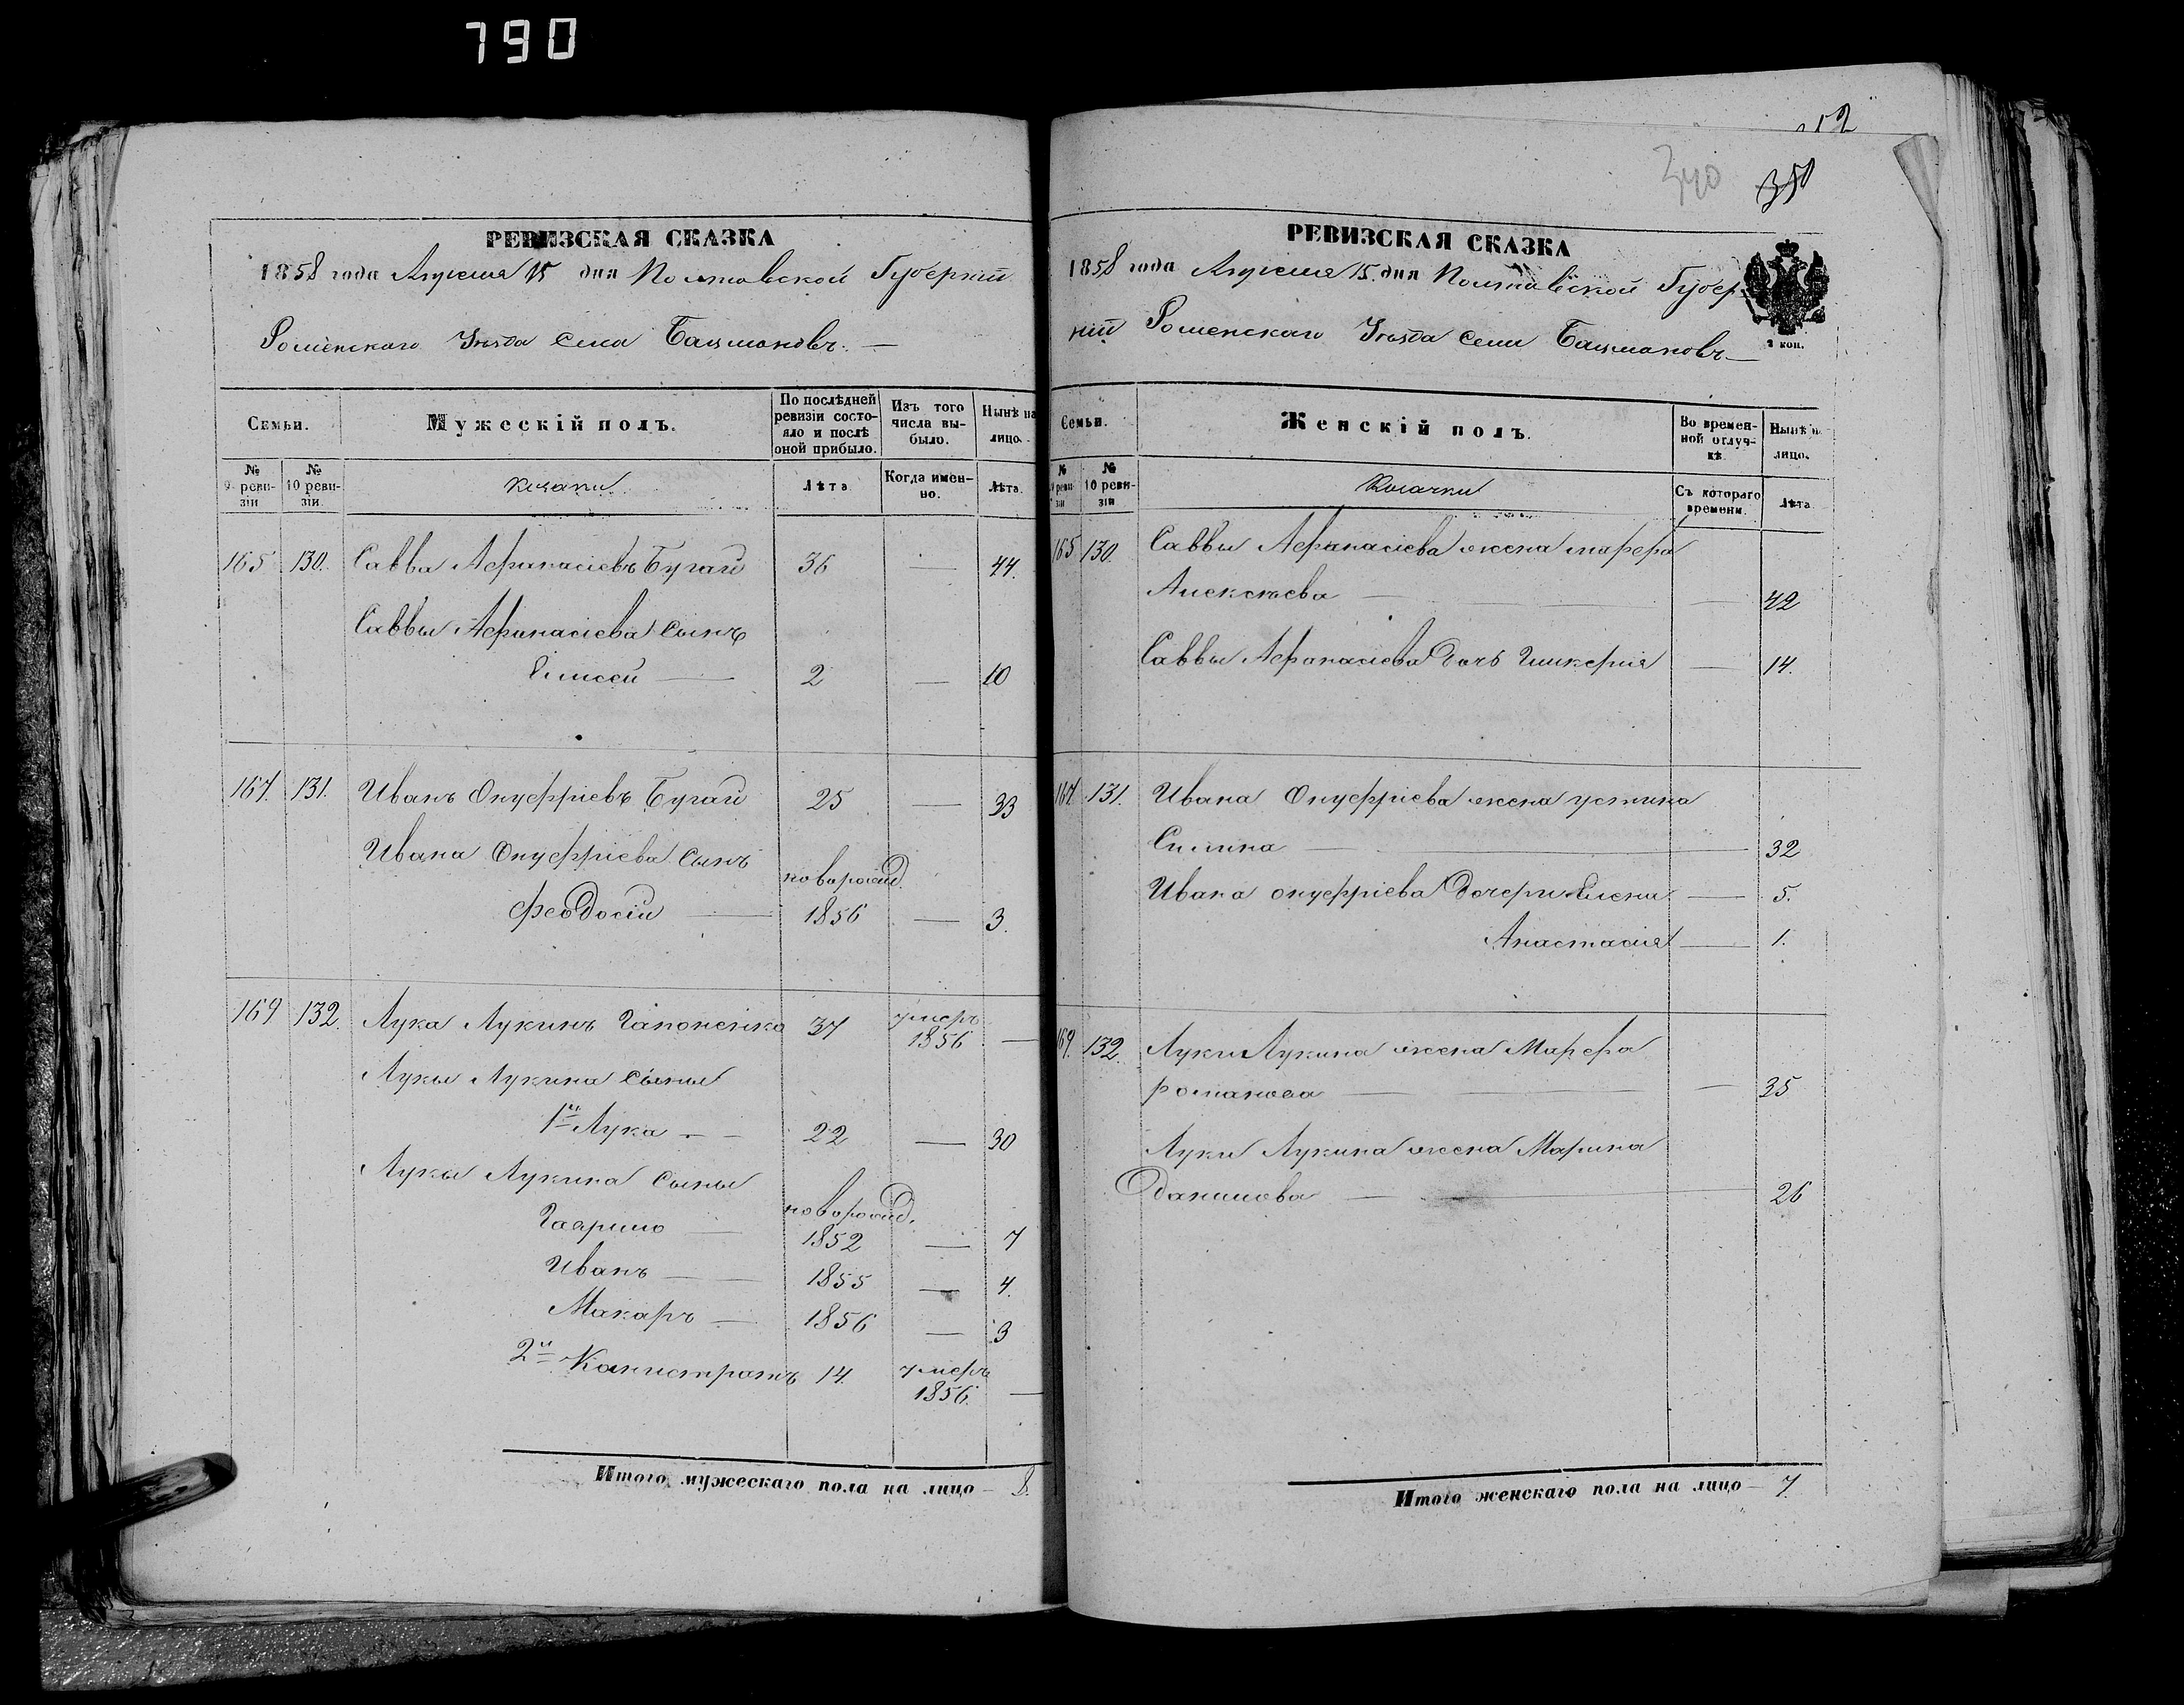 790
52
340
350
РЕВИЗСКАЯ СКАЗКА
1858 года Апреля 15 дня Полтавской Губерніи
Роменскаго Уѣзда Села Бацмановъ. —
Семьи.
Мужескій полъ.
По послѣдней ревизіи состояло и послѣ оной прибыло.
Изъ того числа выбыло.
Нынѣ на лицо.
№ 9 ревизіи
№ 10 ревизіи
Козаки
Лѣта
Когда именно.
Лѣта.
165 130. Савва Афанасіевъ Бугай 36 — 44.
Саввы Афанасіева Сынъ
Елисей — 2 — 10
167. 131. Иванъ Онуфріевъ Бугай 25 — 33
Ивана Онуфріева Сынъ
новорожд.
Феодосій — 1856 — 3.
169 132. Лука Лукинъ Гапоненко 37 умеръ 1856 —
Луки Лукина Сыны
1й Лука — 22 — 30
Луки Лукина Сыны
новорожд.
Гаврило — 1852 — 7
Иванъ — 1855 — 4.
Макаръ — 1856 — 3
2й Калистратъ 14. умеръ 1856. —
Итого мужескаго пола на лицо — 8.
РЕВИЗСКАЯ СКАЗКА
1858 года Апреля 15. дня Полтавской Губер-
ніи Роменскаго Уѣзда Села Бацмановъ —
2 коп.
Семьи.
Женскій полъ.
Во временной отлучкѣ
Нынѣ н. лицо.
№ 9 ревизіи
№ 10 ревизіи
Козачки
Съ котораго времени.
Лѣта
165 130. Саввы Афанасіева жена марфа
Алексѣева — — 42
Саввы Афанасіева дочь Гликерія — 14.
167. 131. Ивана Онуфріева жена устина
Силина — 32
Ивана онуфріева дочери Елена — 5.
Анастасія — 1.
169. 132. Луки Лукина жена Марфа
романова — — 35
Луки Лукина жена Марина
данилова — 26
Итого женскаго пола на лицо — 7.